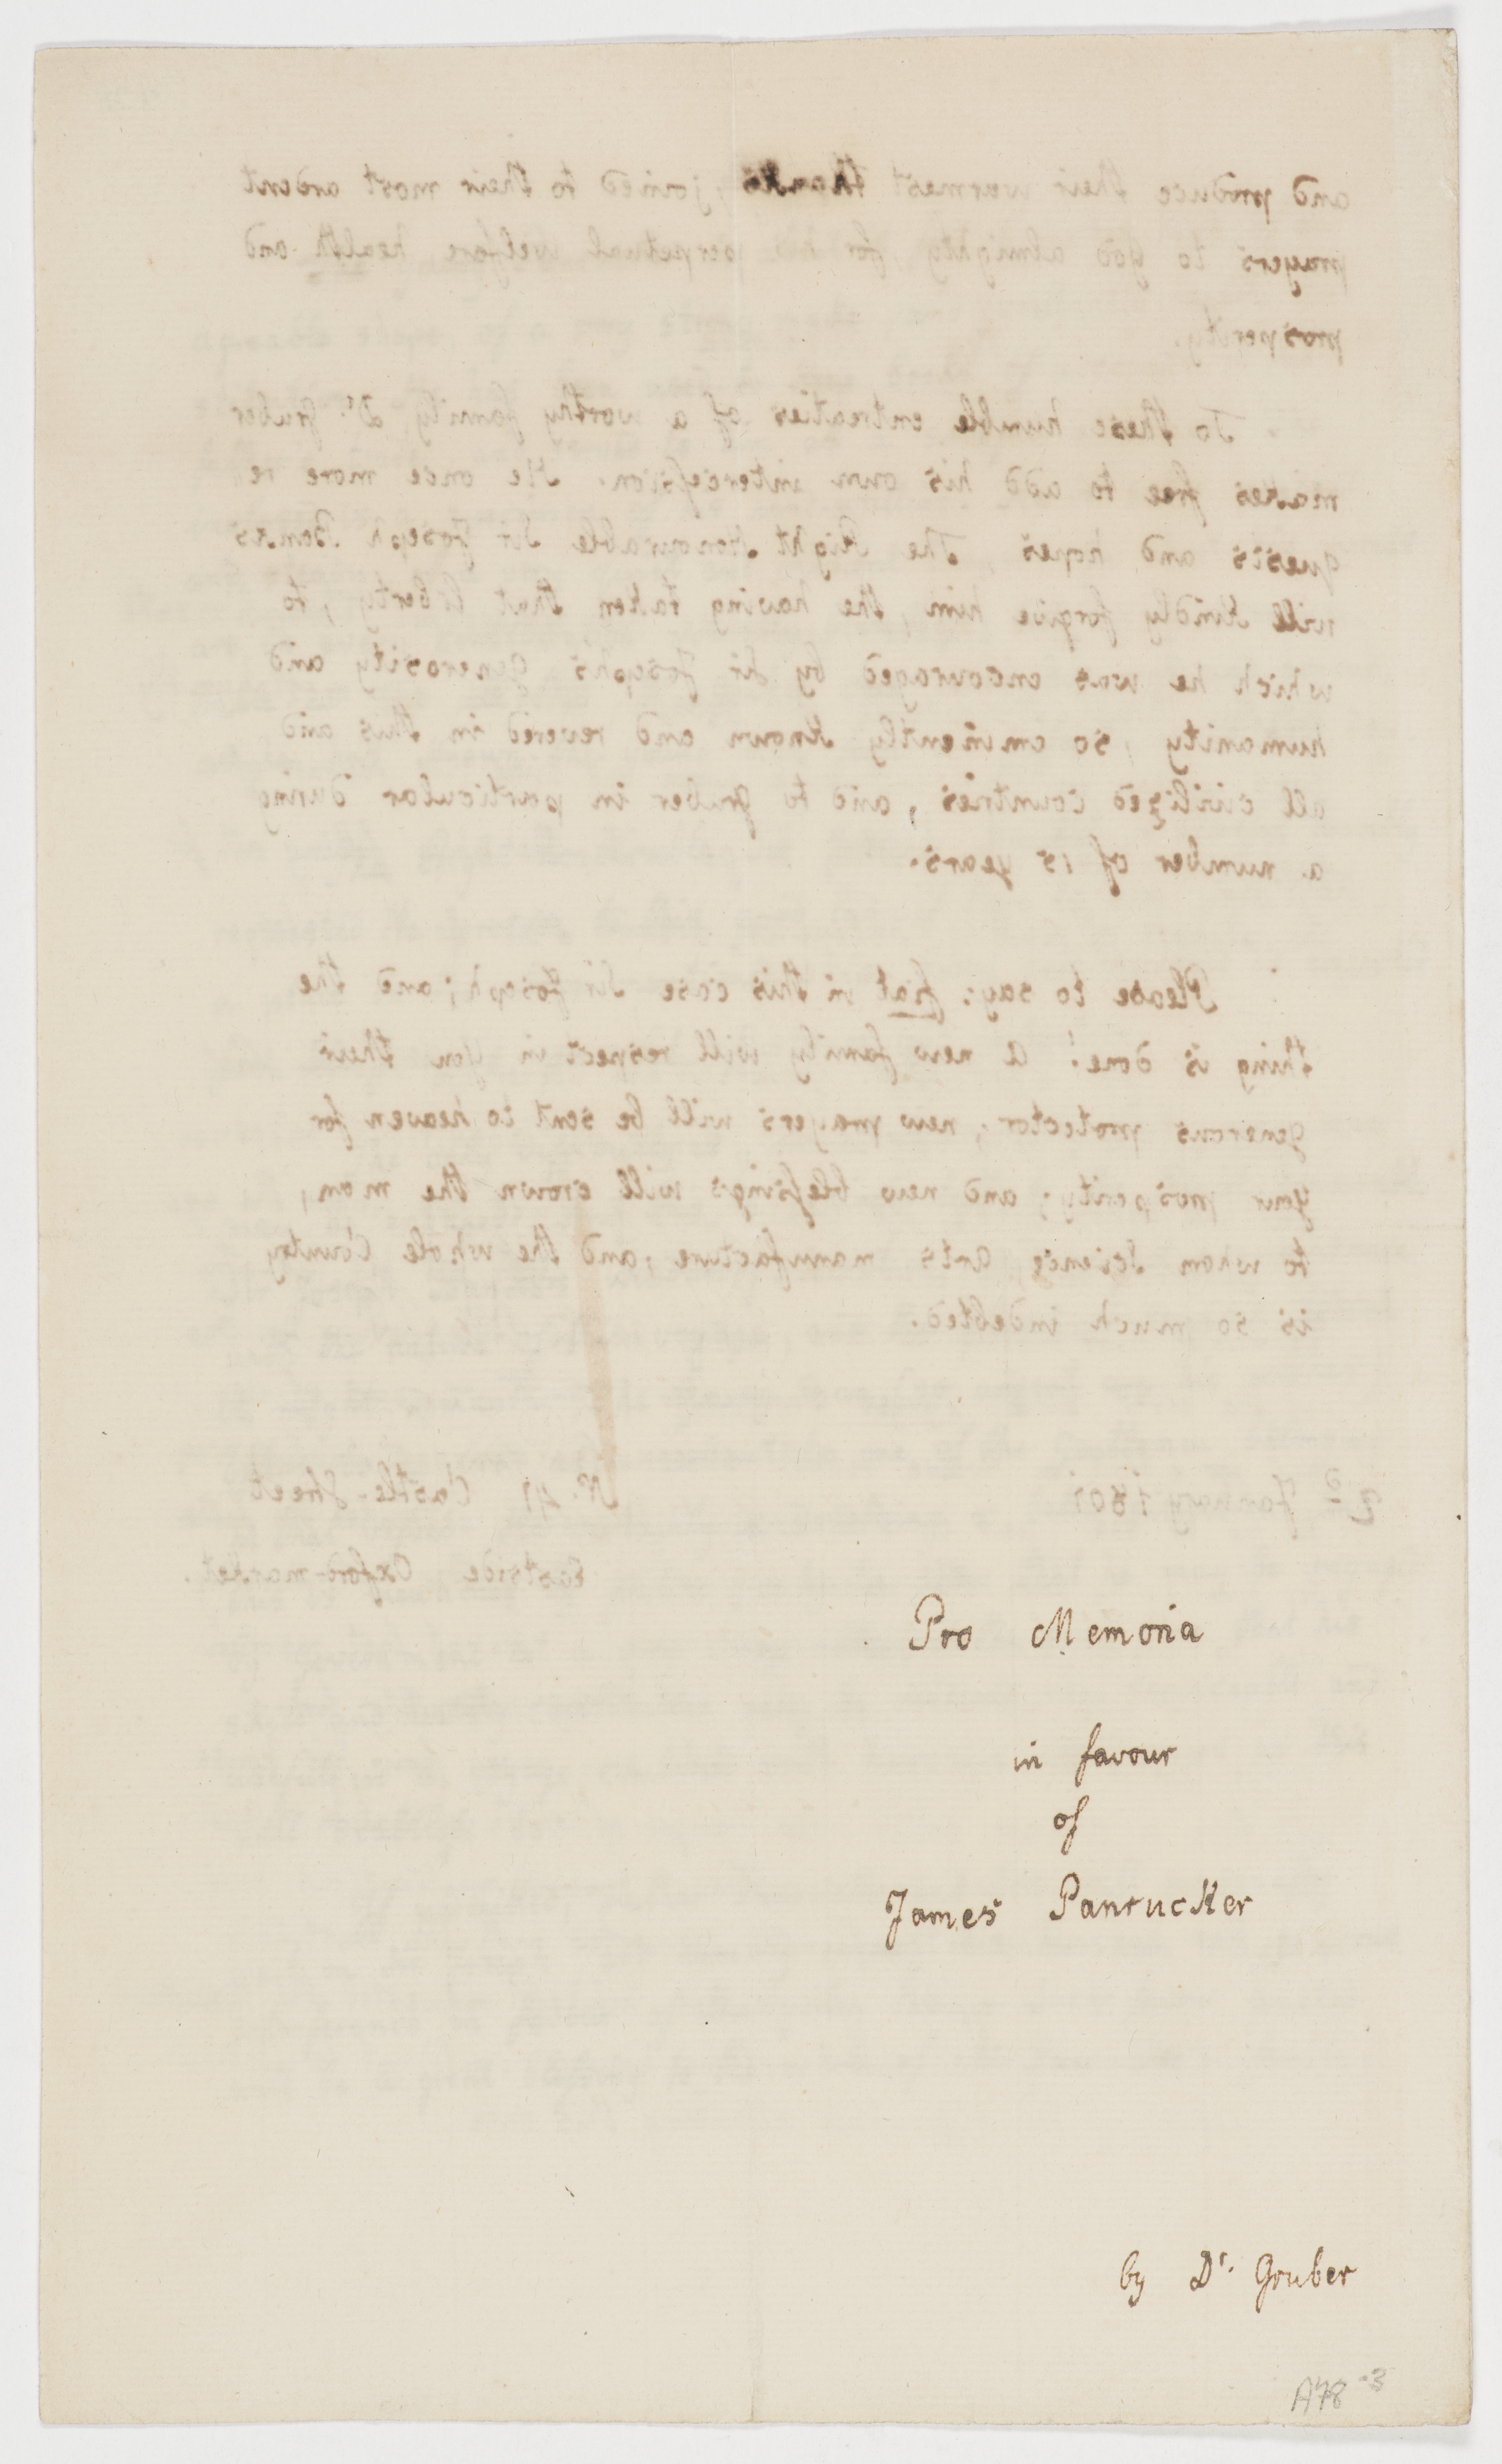 and produce their warmest thanks, joined to their most ardent
prayers to god almighty, for his perpetual welfare, health and
prosperity.
To these humble entreaties of a worthy family Dr. Gruber
makes free to add his own intercession. He once more re
quests and hopes, The Right Honourable Sir Joseph Banks
will Kindly forgive him, the having taken that liberty, to
which he was encouraged by Sir Joseph's generosity and
humanity, so eminently Known and revered in this and
all civilized countries, and to Gruber in particular during
a number of 15 years.
Please to say: fiat in this case Sir Joseph; and the
thing is done! a new family will respect in you their
generous protector; new prayers will be sent to heaven for
your prosperity; and new blessings will crown the man,
to whom Science, arts manufacture, and the whole Country
is so much indebted.
2d January 1801
No. 41 Castle-Street
Eastside Oxford-market.
Pro Memoria
in favour
of
James Panrucker
by Dr. Gruber
A78-3